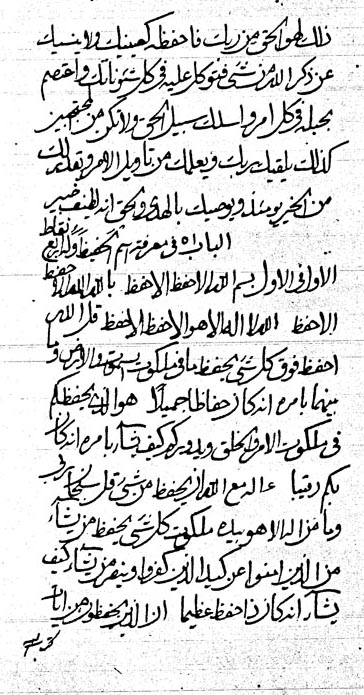 ذلك لهو الحق من ربك فاحفظه كعينيك ولا ينسيك
عن ذكر الله من شيء فتوكل عليه في كل شئوناتك واعتصم
بحبله في كل امر واسلك سبيل الحق ولا تكن من
كذلك يلقيك ربك ويعلمك من تاويل الامر ويقدر لك
من الخير يومئذ ويوصيك بالهدى والحق انه لطيف خبير
الباب في معرفة اسم الحفيظ وله اربع
الاول في الاول بسم الله الاحفظ الاحفظ بالله الله الاحفظ
الاحفظ الله لا اله الا هو الاحفظ الاحفظ قل الله
احفظ فوق كل شيء يحفظ ما في ملكوت السموات والارض وما
بينهما بامره انه كان حفاظا جميلا هو الذي يحفظكم
في ملكوت الامر والخلق كيف يشاء بامره انه كان
بكم رقيبا ءاله مع الله ان يحفظ من شيء قل سبحانه
وما من اله الا هو بيده ملكوت كل شيء يحفظ من يشاء
من الذين امنوا عن كيد الذين كفروا وينصر من يشاء كيف
يشاء انه كان حفظ عظيما ان الذين يحفظون من ايات